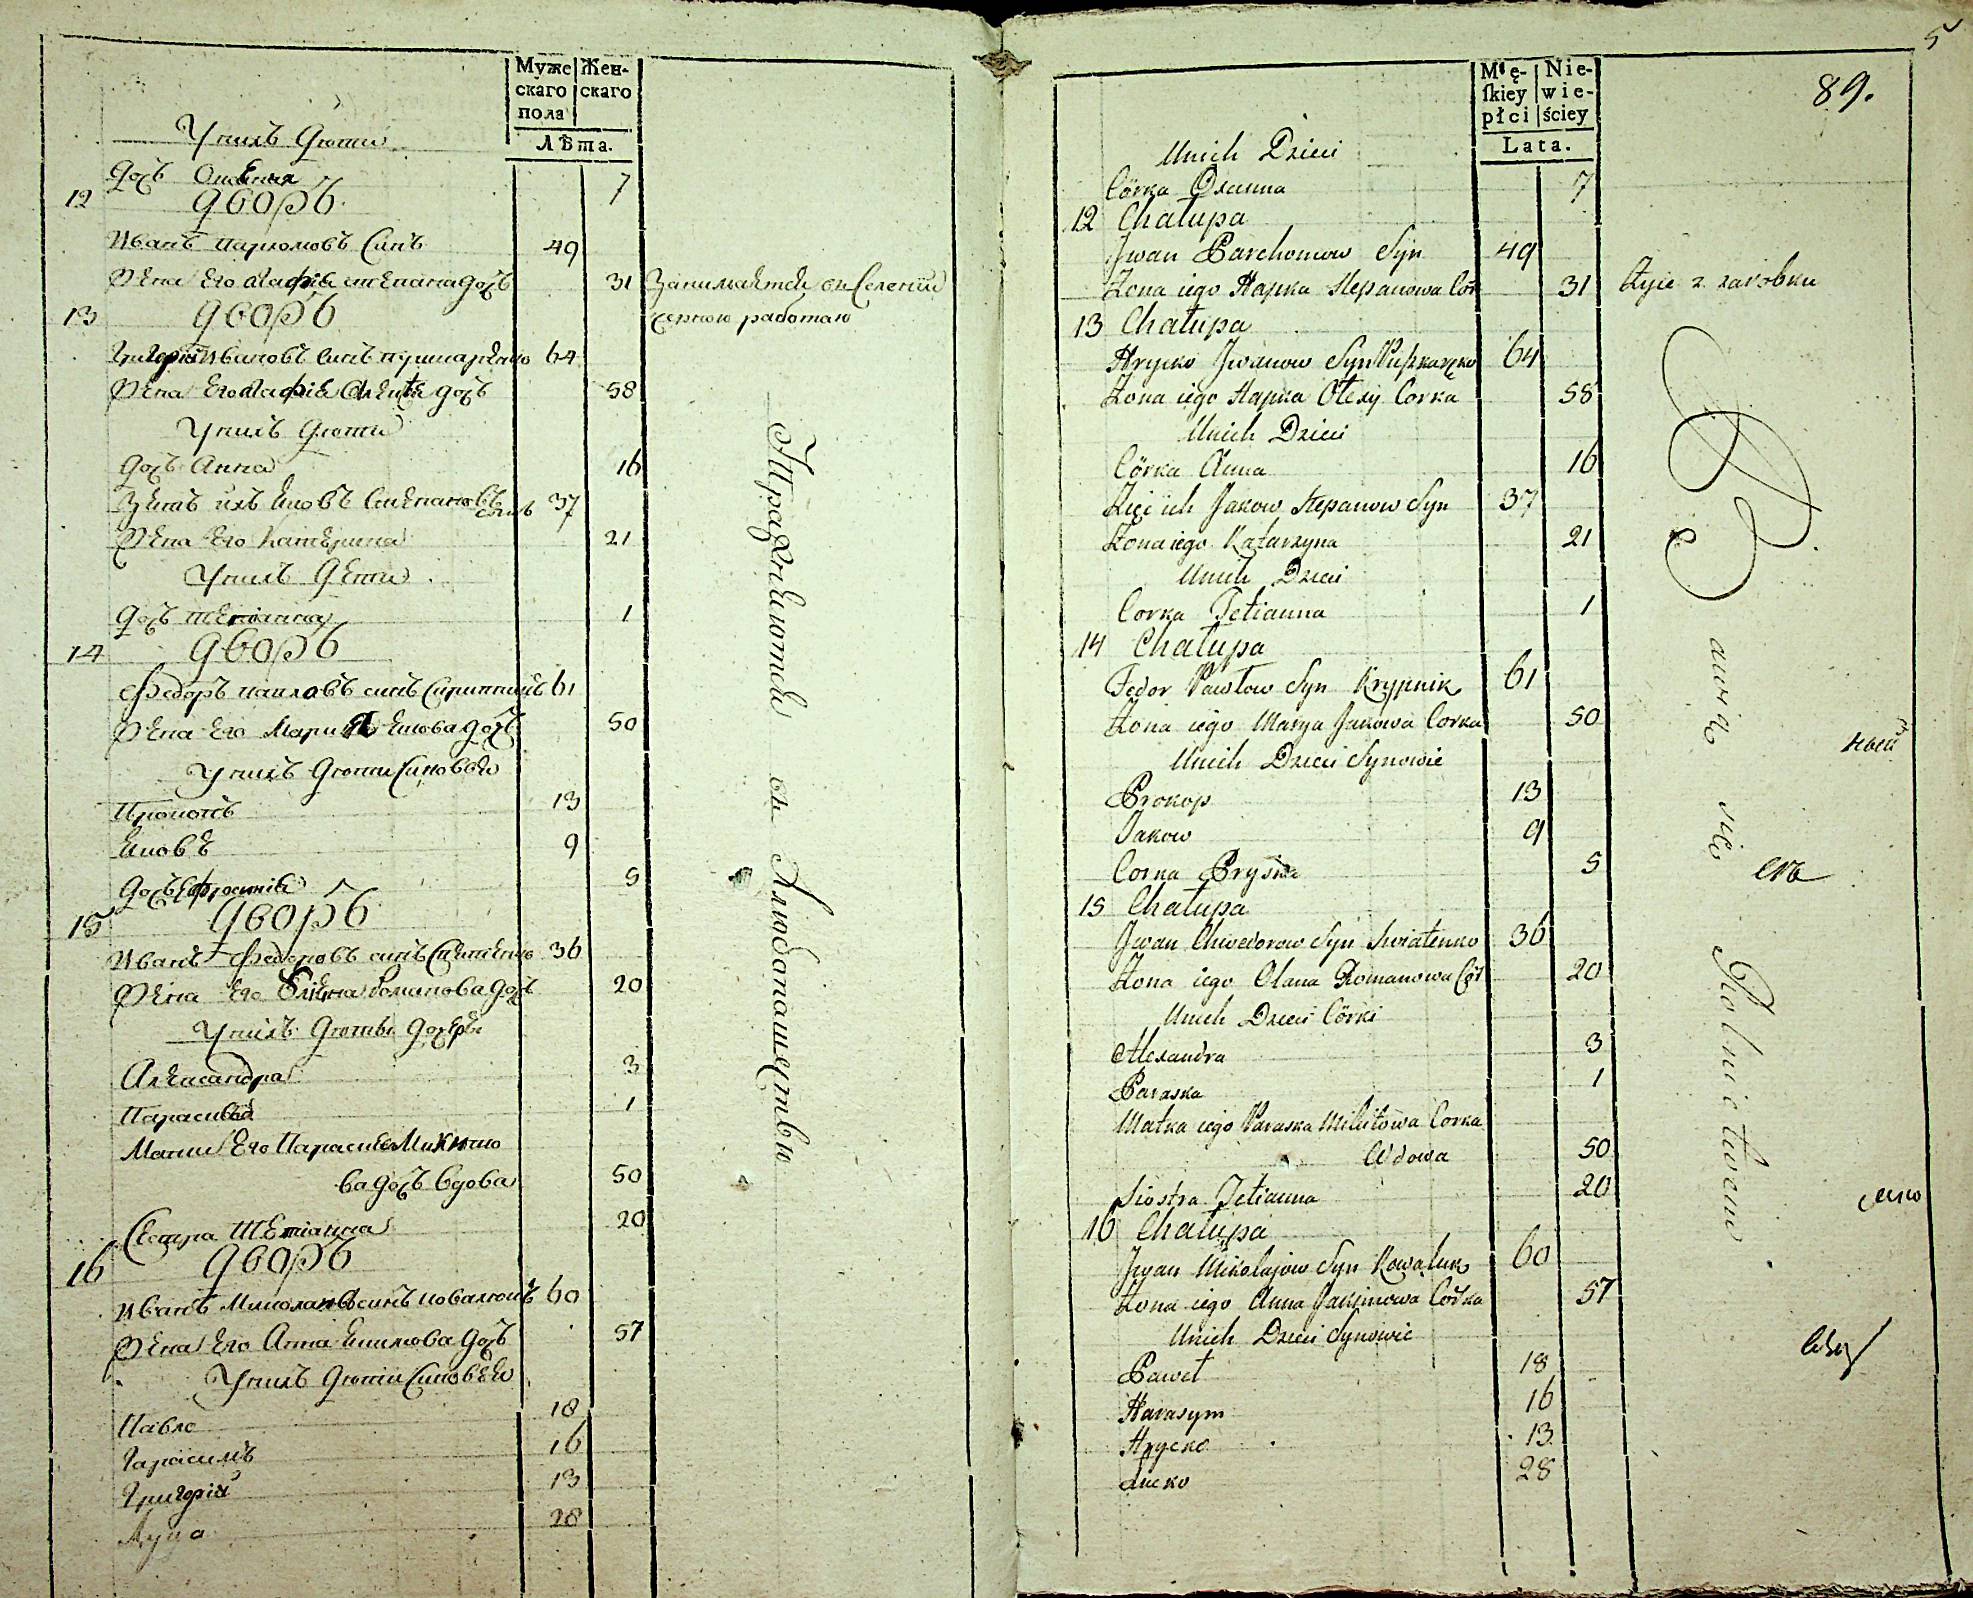 Муже
скаго
пола
Жен-
скаго
Лѣта.
У них дѣти
дочь 7
12 дворъ
Иванъ Пархомовъ синъ 49
Жена его степана дочь 31 Занимается в селении
черною работаю
13 дворъ
Григорій Ивановъ синъ 64
Жена его дочь 58
У нихъ дѣти
дочь Анна 16
Зять ихъ Яковъ Степановъ синъ 37
Жена его Катерина 21
У нихъ дети
дочь тетіанна 1
14 дворъ
Федоръ павловъ синъ 61
Жена его Марія Якова дочь 50
У нихъ дѣти синовья
Прокопъ 13
Яковъ 9
дочь Ефросинія 5
15 дворъ
Иванъ Федоровъ синъ 36
Жена его Елена Романова дочь 20
У нихъ дѣти дочери
Александра 3
Параскева 1
Мати его Параскева
ва дочь вдова 50
Сестра Тетіанна 20
16 дворъ
Иванъ Миколаевъ синъ Ковалюкъ 60
Жена его Анна Якимова дочь 57
У нихъ дѣти синовья
Павло 18
Гарасимъ 16
Григорій 13
Луца 28
Упражняются въ хлебопашествью
5
89.
Męskiey
płci
Niewieściey
Lata.
Unich Dzieci
Córka Oxanna 7
12 Chałupa
Jwan Parchomow Syn 49
Żona iego Hapka Stepanowa Cór 31 Żyie z zarobku
13 Chałupa
Hrycko Jwanow Syn Puszkarzko 64
Żona iego Hapka Ołexy Corka 58
Unich Dzieci
Córka Anna 16
Zięć ich Jakow Stepanow Syn 37
Żona iego Katarzyna 21
Unich Dzieci
Corka Tetianna 1
14 Chałupa
Fedor Pawłow Syn Krypnik 61
Żona iego Marya Jakowa Corka 50
Unich Dzieci Synowie
Prokop 13
Jakow 9
Corka Pryska 5
15 Chałupa
Jwan Chwedorow Syn Swiatenko 36
Żona iego Olana Romanowa Cór 20
Unich Dzieci Córki
Alexandra 3
Paraska 1
Matka iego Paraska Mikitowa Corka
Wdowa 50
Siostra Tetianna 20
16 Chałupa
Jwan Mikołajow Syn Kowaluk 60
Żona iego Anna Jakimowa Córka 57
Unich Dzieci Synowie
Paweł 18
Harasym 16
Hrycko 13
Lucko 28
Bawią się Rolnictwem